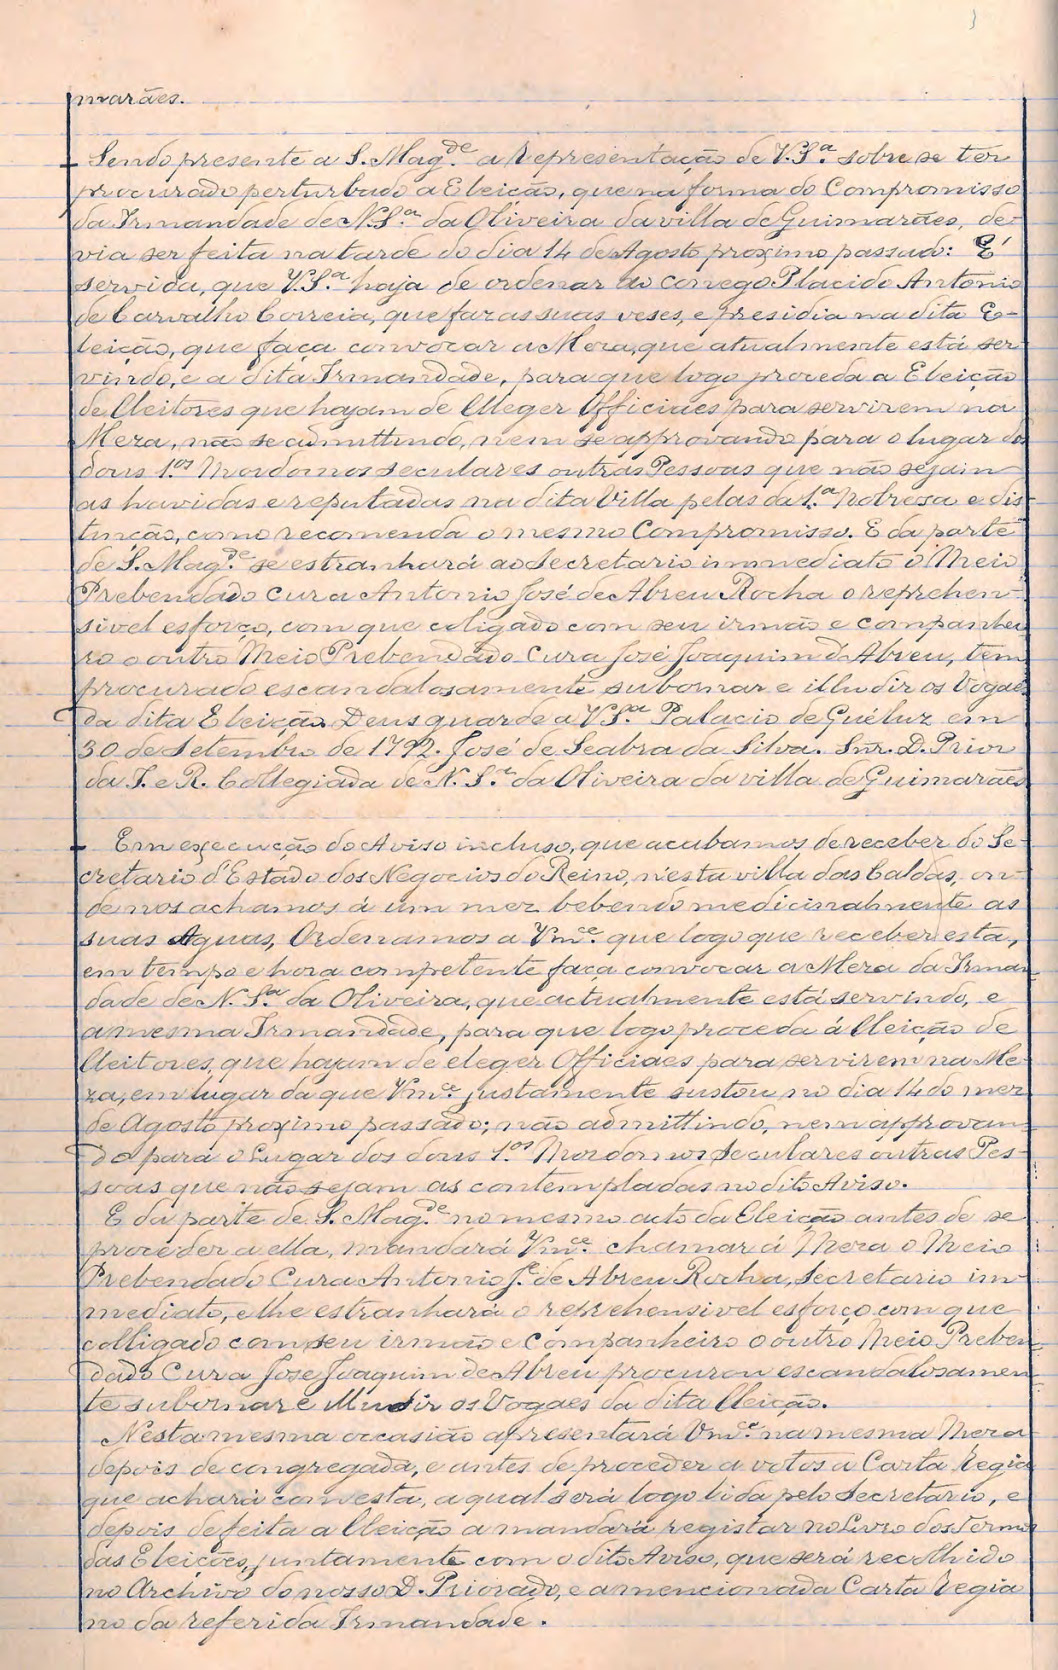 marães.
Sendo presente a S. Mag.de a Representação de V.S.a sobre se ter
procurado perturbado a Eleição, que na forma do Compromisso
da Irmandade de N.S.ra da Oliveira da villa de Guimarães, de-
via ser feita na tarde do dia 14 de Agosto proximo passado: É
servida, que V.S.a haja de ordenar ao conego Placido Antonio
de Carvalho Correia, que faz as suas veses, e presidia na dita E-
leição, que faça convocar a Meza, que atualmente está ser
vindo, e a dita Irmandade, para que logo proceda a Eleição
de Eleitores que hajam de Eleger Officiaes para servirem na
Meza, não se admittindo, nem se approvando para o lugar dos
dous 1.os Mordomos seculares outras Pessoas que não sejam
as havidas e reputadas na dita Villa pelas da 1.a Nobresa e dis-
tincção, como recomenda o mesmo Compromisso. E da parte
de S. Mag.de se estranhará ao Secretario immediato o Meio
Prebendado Cura Antonio José de Abreu Rocha o reprehen-
sivel esforço, com que coligado com seu irmão e companhei
ro o outro Meio Prebendado Cura José Joaquim d'Abreu, tem
procurado escandalosamente subornar e illudir os Vogaes
da dita Eleição. Deus guarde a V.S.a Palacio de Quéluz em
30 de Setembro de 1792. José de Seabra da Silva. Snr. D. Prior
da I. e R. Collegiada de N. S.ra da Oliveira da villa de Guimarães
Em execução do Aviso incluso, que acabamos de receber do Se-
cretario d'Estado dos Negocios do Reino, n'esta villa das Caldas, on-
de nos achamos á um mez bebendo medicinalmente as
suas Aguas, Ordenamos a Vm.ce que logo que receber esta,
em tempo e hora competente faça convocar a Meza da Irman-
dade de N. S.ra da Oliveira, que actualmente está servindo, e
a mesma Irmandade, para que logo proceda á Eleição de
Eleitores, que hajam de eleger Officiaes para servirem na Me-
za, em lugar da que Vm.ce justamente sustou no dia 14 do mez
de Agosto proximo passado; não admittindo, nem approvan-
do para o Lugar dos dous 1.os Mordomos Seculares outras Pes-
soas que não sejam as contempladas no dito Aviso.
E da parte de S. Mag.de no mesmo acto da Eleição antes de se
proceder a ella, mandará Vm.ce chamar á Meza o Meio
Prebendado Cura Antonio J.e de Abreu Rocha, Secretario im-
mediato, e lhe estranhará o reprehensivel esforço com que
colligado com seu irmão e Companheiro o outro Meio Preben-
dado Cura José Joaquim de Abreu procurou escandalosamen-
te subornar e illudir os Vogaes da dita Eleição.
Nesta mesma occasião apresentará Vm.ce na mesma Meza
depois de congregada, e antes de proceder a votos a Carta Regia
que achará com esta, a qual será logo lida pelo Secretario, e
depois de feita a Eleição a mandará registar no Livro dos Termos
das Eleições, juntamente com o dito Aviso, que será recolhido
no Archivo do nosso D. Priorado, e a mencionada Carta Regia
no da referida Irmandade.